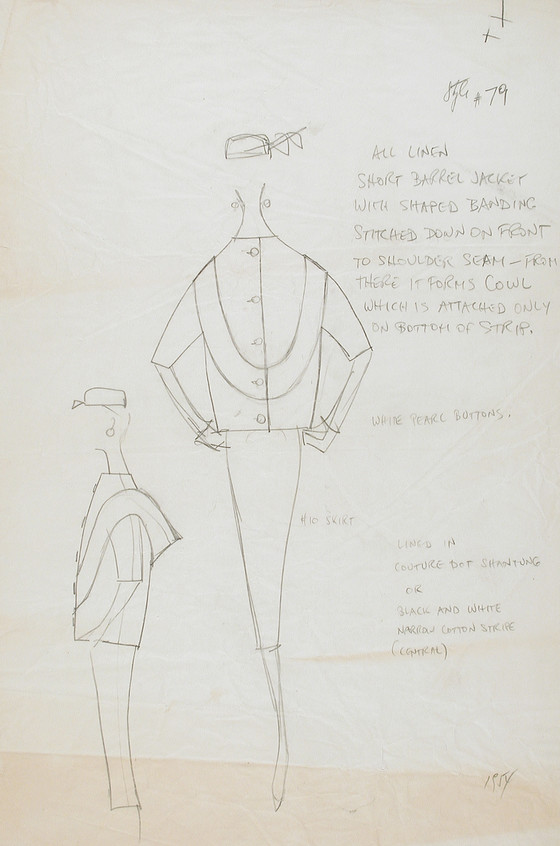 Style #79
ALL LINEN
SHORT BARREL JACKET
WITH SHAPED BANDING
STITCHED DOWN ON FRONT
TO SHOULDER SEAM – FROM
THERE IT FORMS COWL
WHICH IS ATTACHED ONLY
ON BOTTOM OF STRIP.
WHITE PEARL BUTTONS.
#10 SKIRT
LINED IN
COUTURE DOT SHANTUNG
OR
BLACK AND WHITE
NARROW COTTON STRIPE
(CENTRAL)
1954